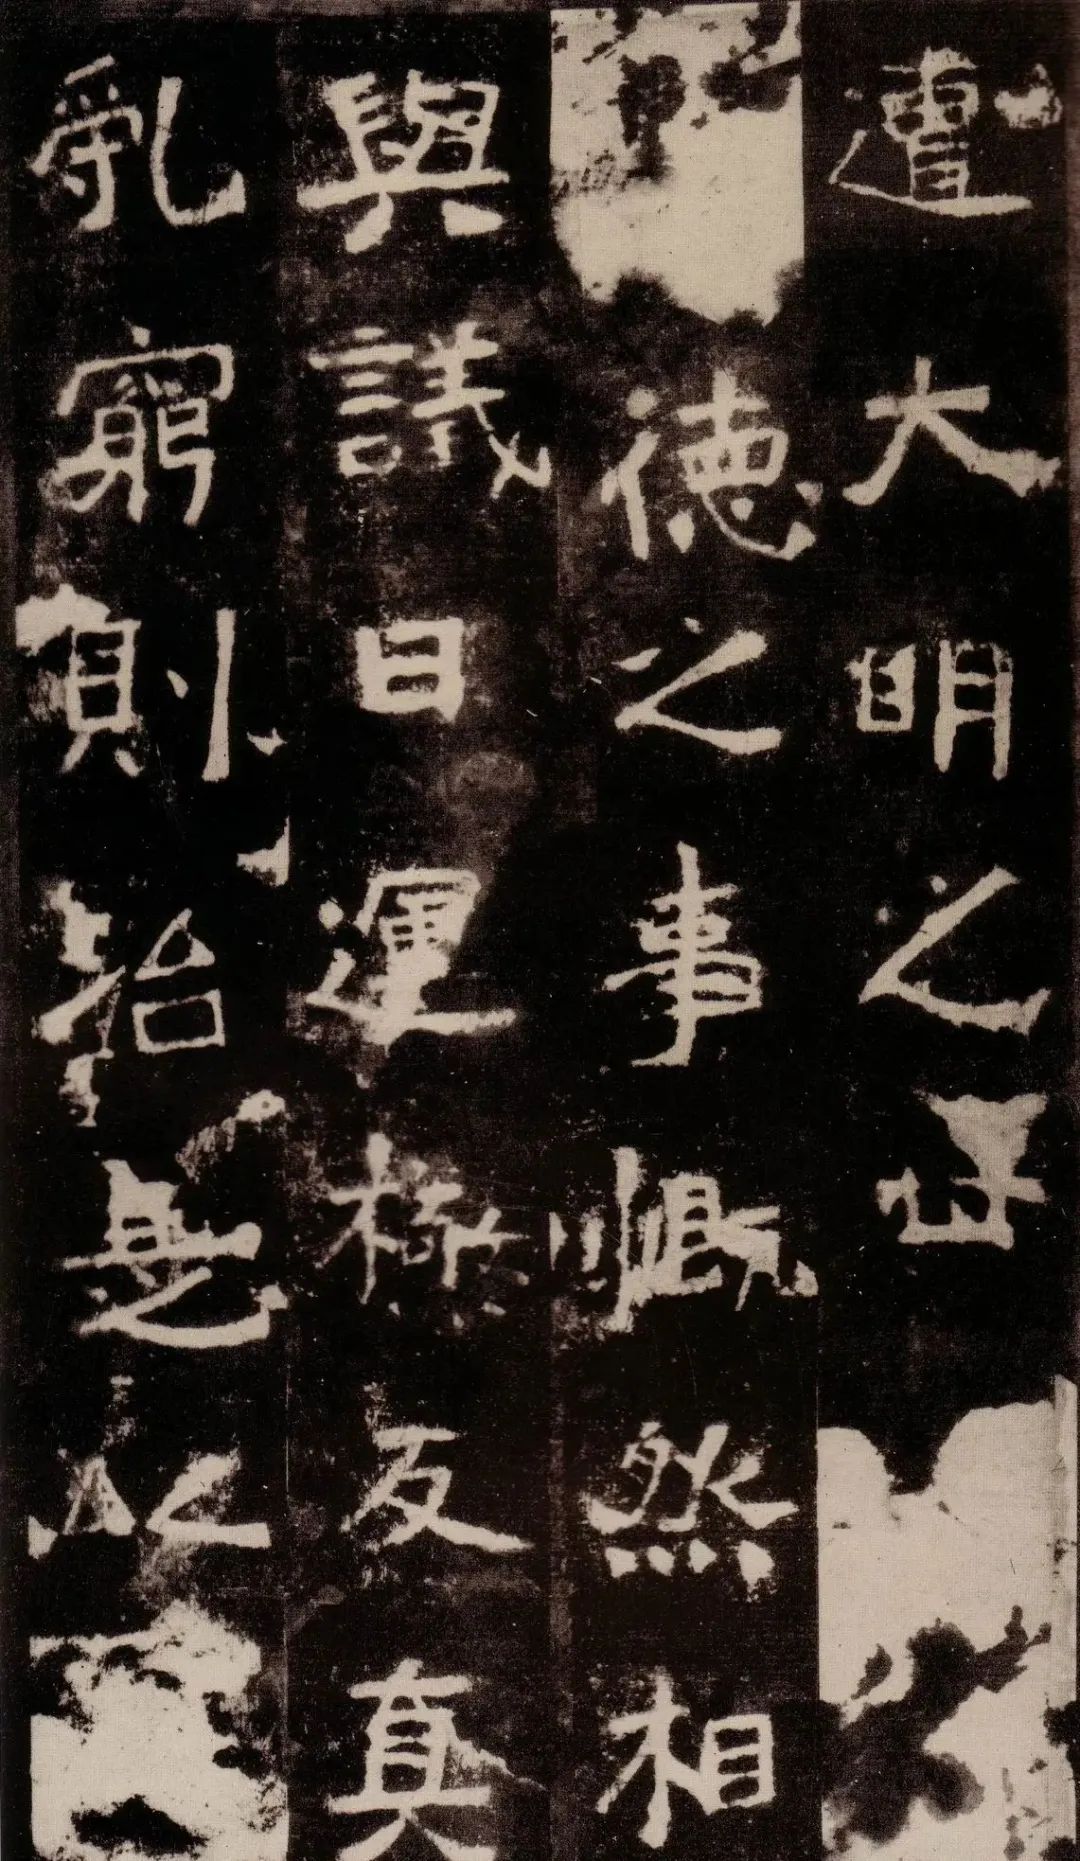 遭大明之世
德之事慨然相
與議曰運極反真
亂窮則治是以